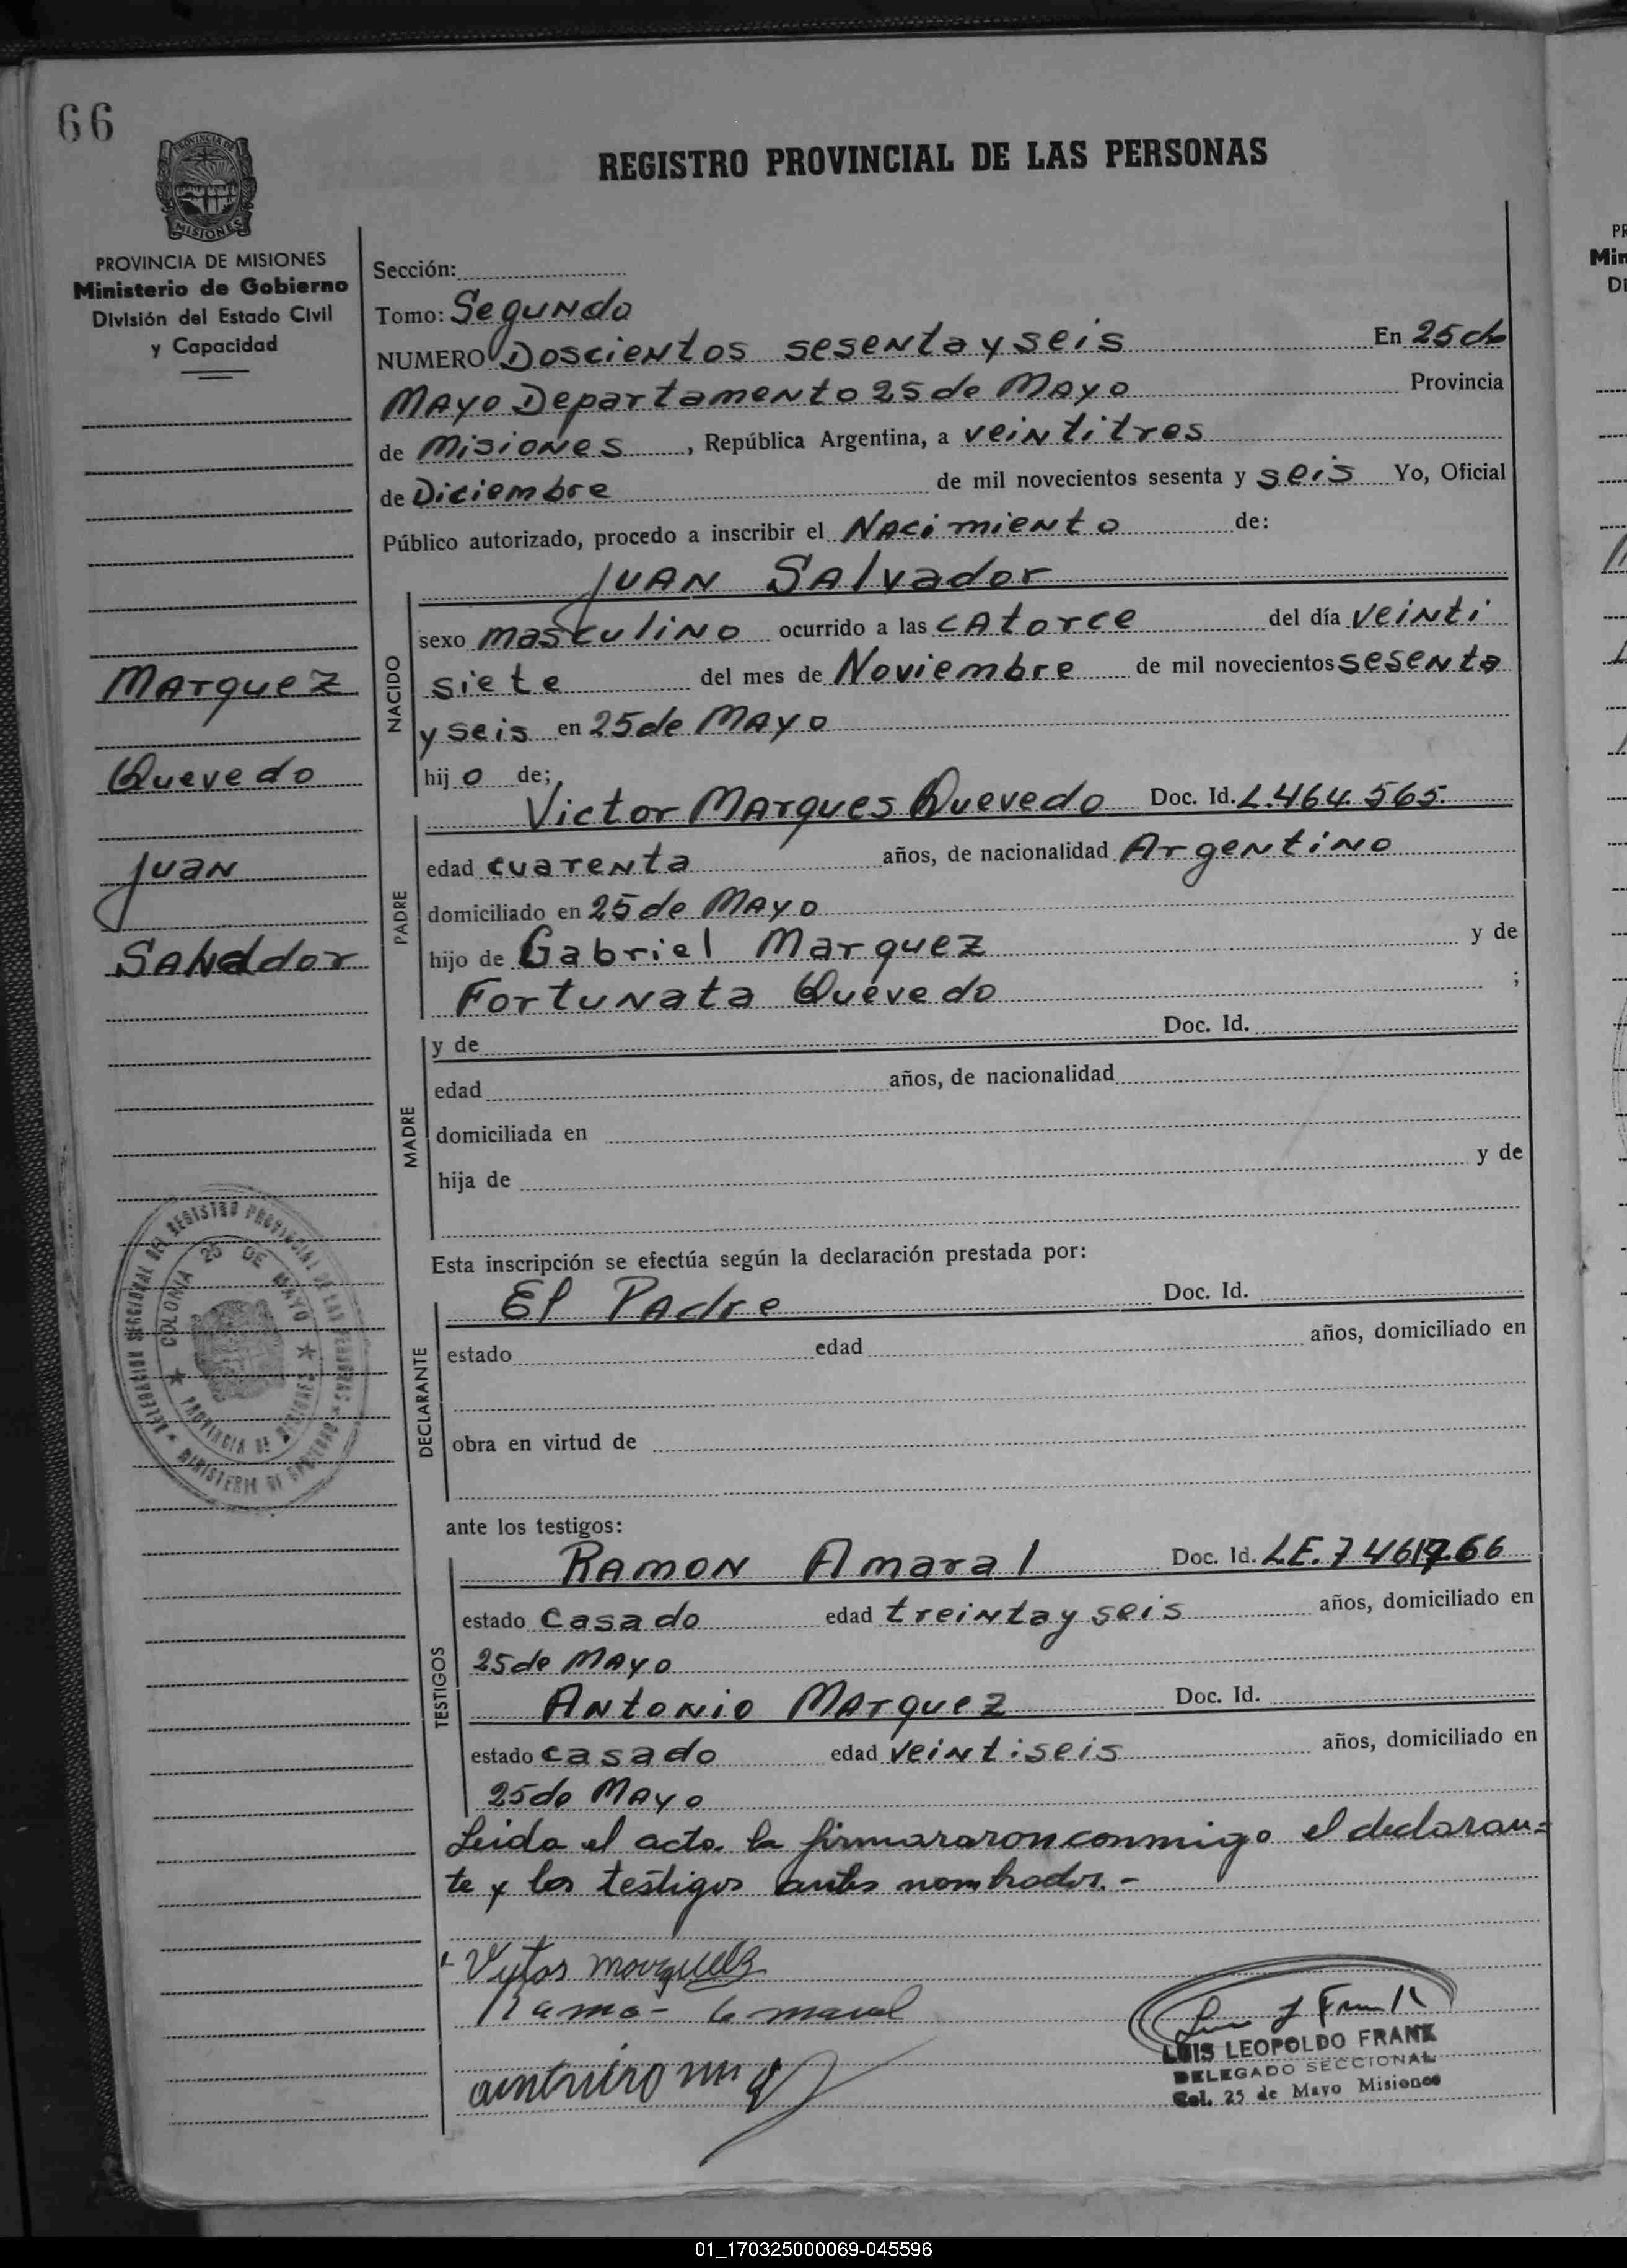 66
REGISTRO PROVINCIAL DE LAS PERSONAS
PROVINCIA DE
MISIONES
PROVINCIA DE MISIONES
Ministerio de Gobierno
División del Estado Civil
y Capacidad
Marquez
Quevedo
Juan
Salvador
Sección:
Tomo: Segundo
NUMERO Doscientos sesenta y seis En 25 de
Mayo Departamento 25 de Mayo Provincia
de Misiones, República Argentina, a veintitres
de Diciembre de mil novecientos sesenta y seis Yo, Oficial
Público autorizado, procedo a inscribir el Nacimiento de:
Juan Salvador
NACIDO
sexo masculino ocurrido a las catorce del día veinti
siete del mes de Noviembre de mil novecientos sesenta
y seis en 25 de Mayo
hijo de;
PADRE
Victor Marques Quevedo Doc. Id. L.464.565.
edad cuarenta años, de nacionalidad Argentino
domiciliado en 25 de Mayo
hijo de Gabriel Marquez y de
Fortunata Quevedo ;
MADRE
y de Doc. Id.
edad años, de nacionalidad
domiciliada en
hija de y de
Esta inscripción se efectúa según la declaración prestada por:
DECLARANTE
El Padre Doc. Id.
estado edad años, domiciliado en
obra en virtud de
DELEGACION SECCIONAL DEL REGISTRO PROVINCIAL DE LAS PERSONAS
MINISTERIO DE GOBIERNO
COLONIA 25 DE MAYO
PROVINCIA DE MISIONES
ante los testigos:
TESTIGOS
Ramon Amaral Doc. Id. L.E.
estado casado edad treinta y seis años, domiciliado en
25 de Mayo
Antonio Marquez Doc. Id.
estado casado edad veintiseis años, domiciliado en
25 de Mayo
Leida el acta la firmararon conmigo el declaran=
te y los testigos antes nombrados.-
LUIS LEOPOLDO FRANK
DELEGADO SECCIONAL
Col. 25 de Mayo Misiones
PR
Min
Di
01_170325000069-045596